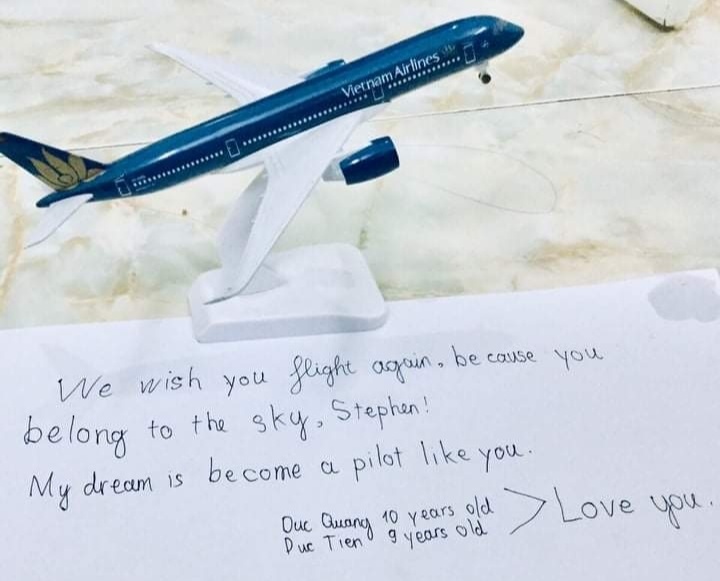 Vietnam Airlines
We wish you flight again, because you
belong to the sky, Stephen!
My dream is become a pilot like you.
Duc Quang 10 years old
Duc Tien 9 years old > Love you.